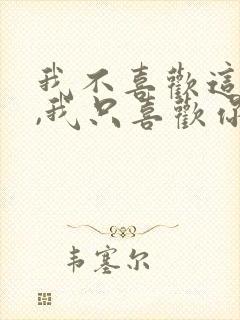 我不喜歡這
,我只喜歡你
韦塞尔